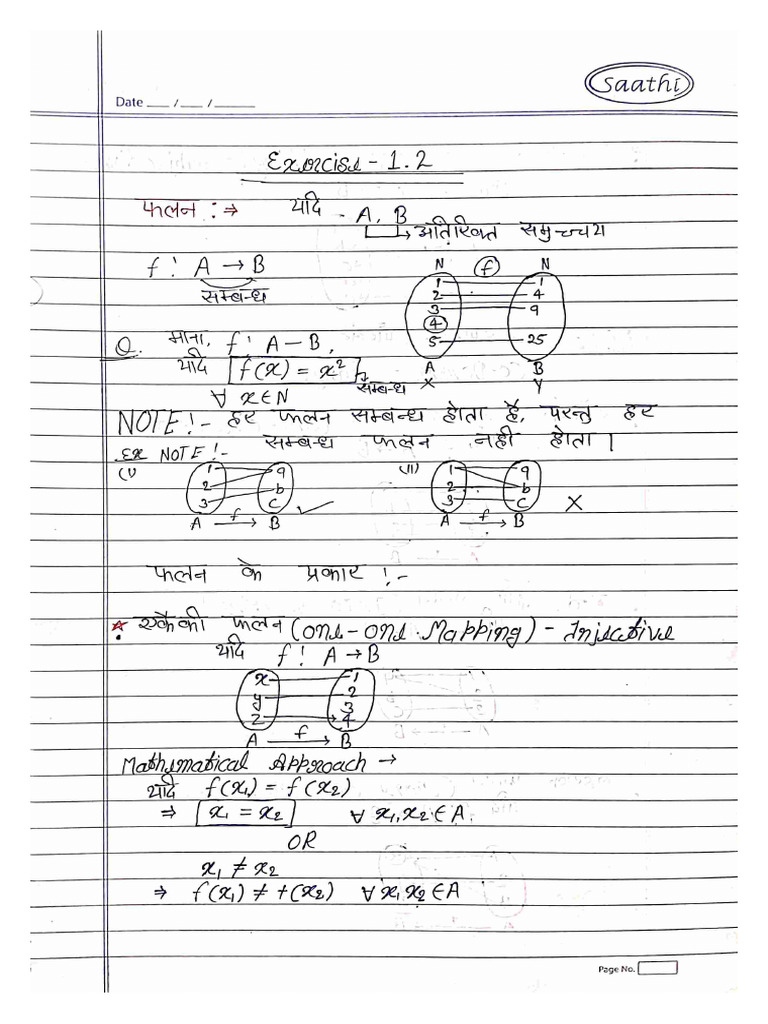 Saathi
Date ___ / ___ / ______
Exercise - 1.2
फलन :⇒ यदि A, B
अतिरिक्त समुच्चय
f : A → B
सम्बन्ध
N f N
1 1
2 4
3 9
4
5 25
A B
X Y
Q. माना, f : A – B,
यदि f(x) = x² सम्बन्ध
∀ x ∈ N
NOTE :- हर फलन सम्बन्ध होता है, परन्तु हर
सम्बन्ध फलन नही होता।
Ex NOTE :-
(I) 1 2 3 a b c A f→ B ✓
(II) 1 2 3 a b c A f→ B X
फलन के प्रकार :-
* एकैकी फलन (one-one Mapping) - Injective
यदि f : A → B
x 1
y 2
3
z 4
A f→ B
Mathematical Approach →
यदि f(x₁) = f(x₂)
⇒ x₁ = x₂ ∀ x₁, x₂ ∈ A.
OR
x₁ ≠ x₂
⇒ f(x₁) ≠ f(x₂) ∀ x₁ x₂ ∈ A
Page No.